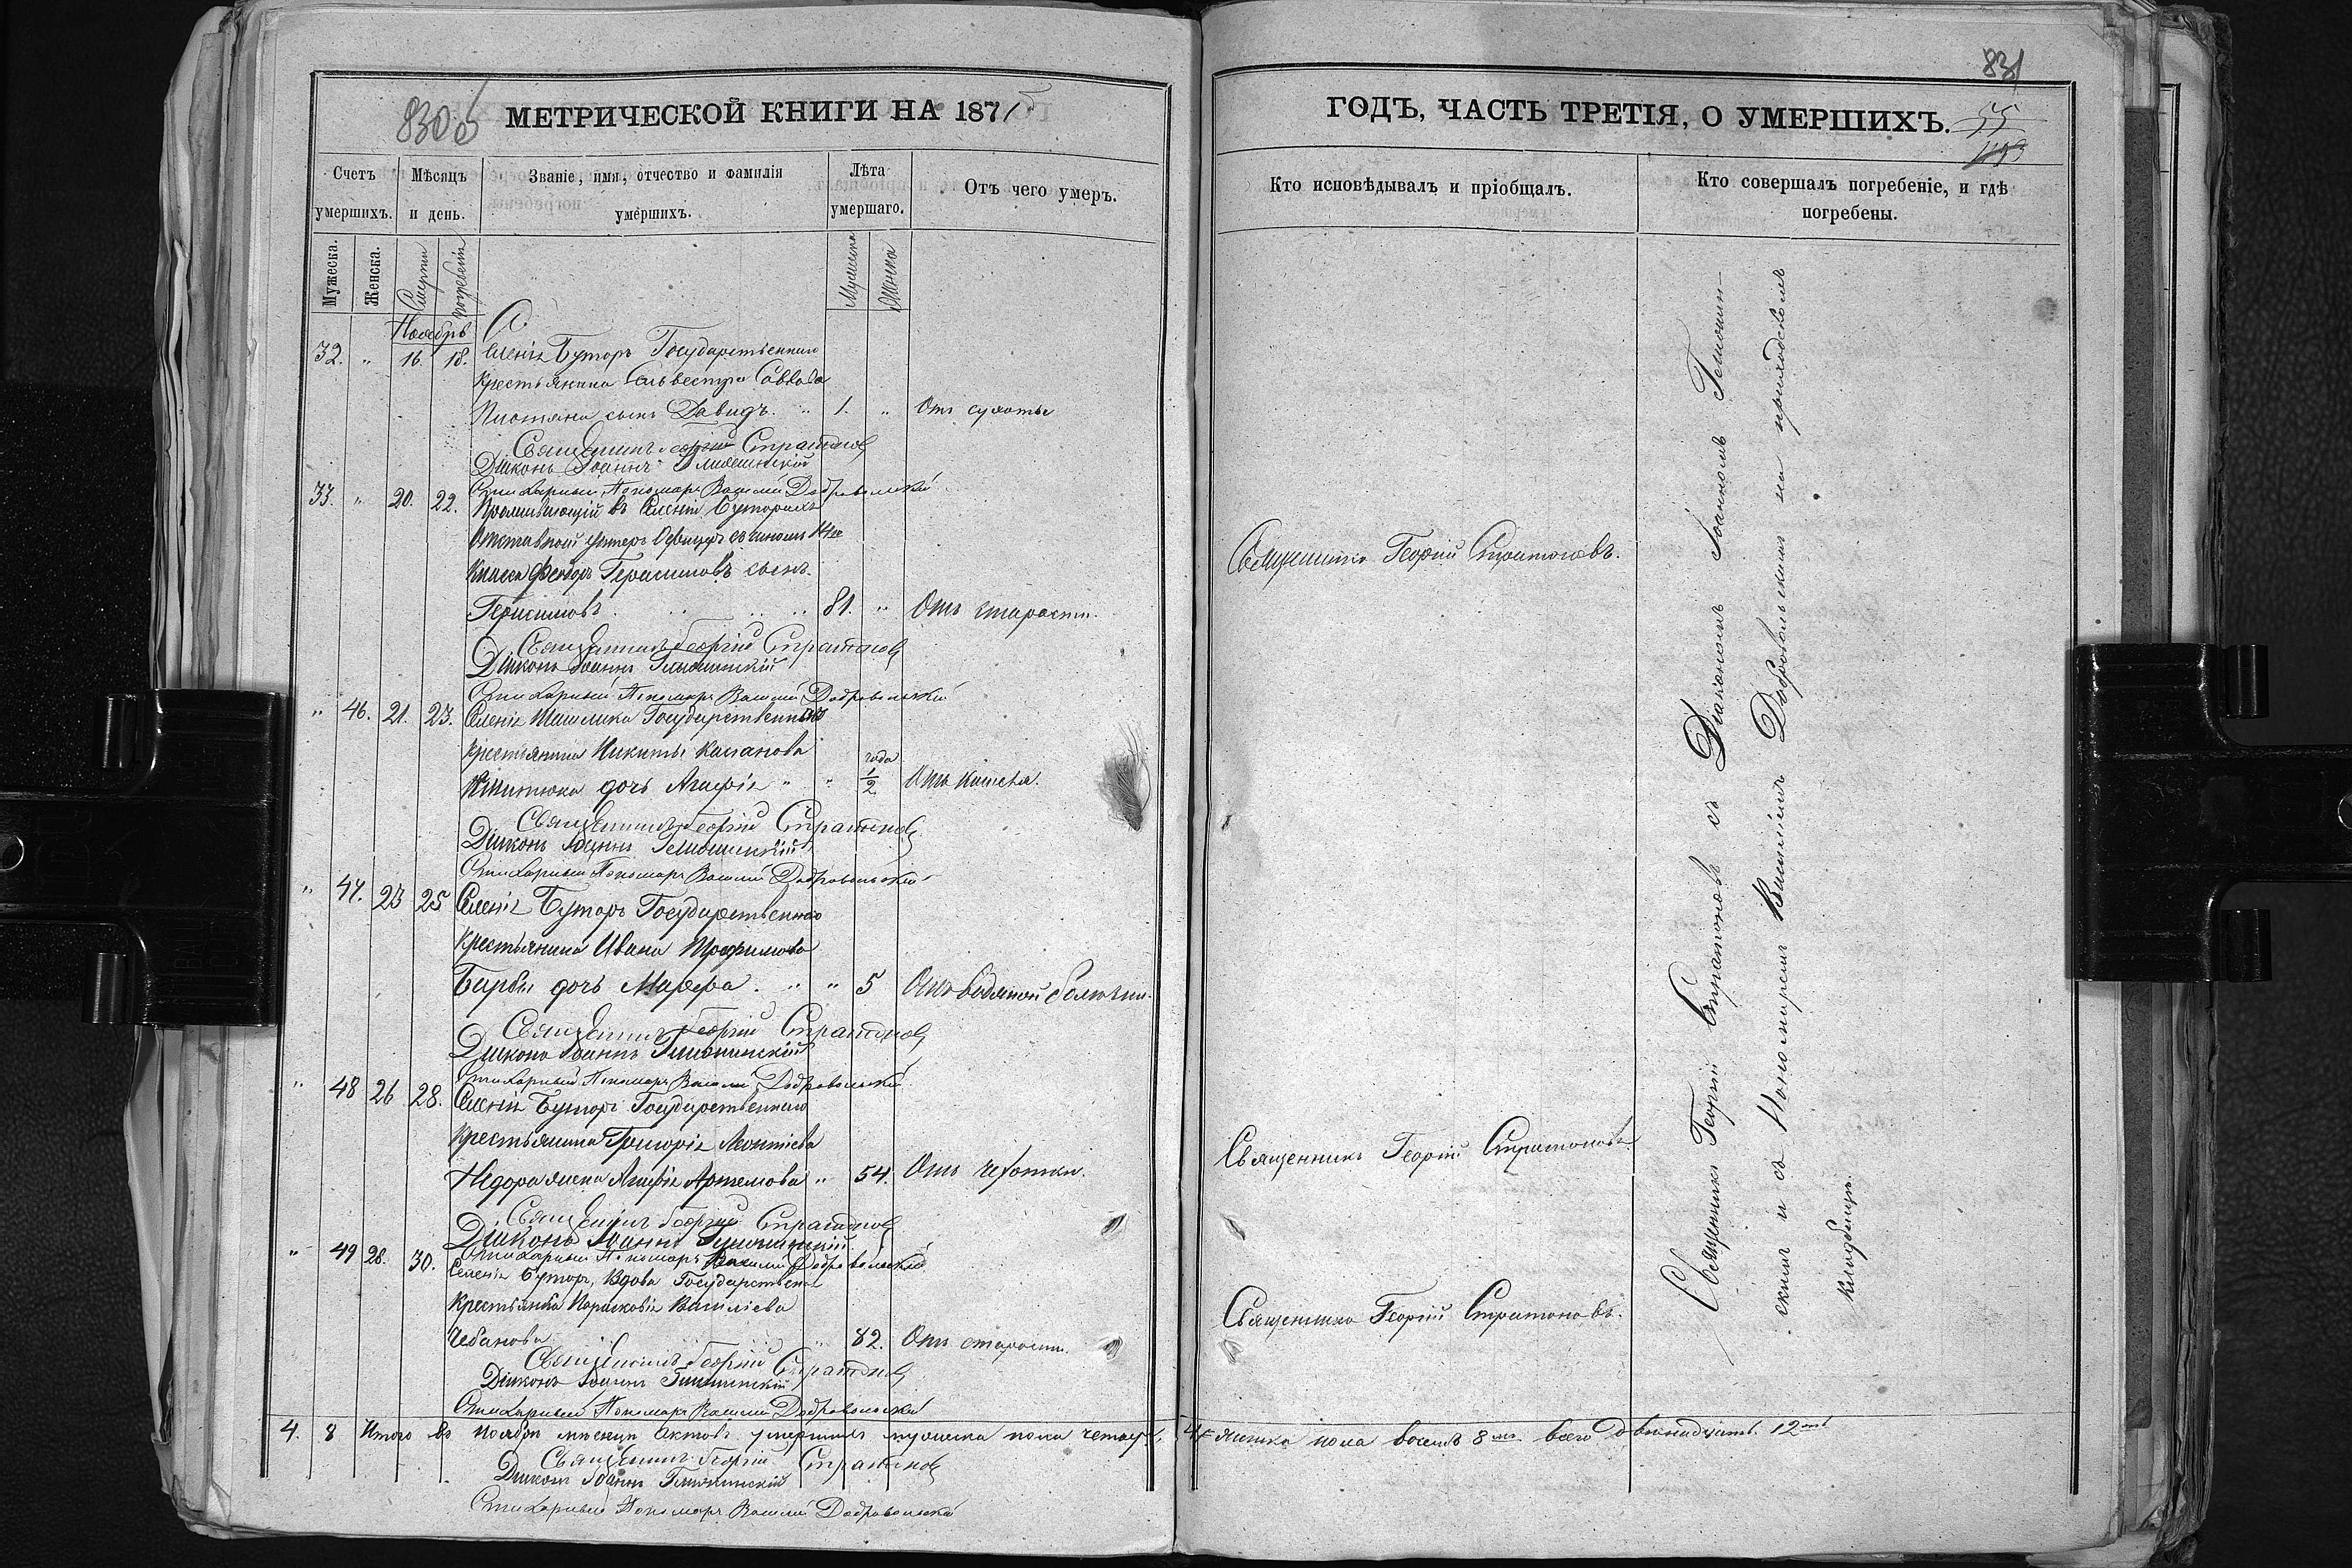 830 об
МЕТРИЧЕСКОЙ КНИГИ НА 1871
Счетъ умершихъ.
Мѣсяцъ и день.
Званіе, имя, отчество и фамилія умершихъ.
Лѣта умершаго.
Отъ чего умеръ.
Мужеска. Женска. Смерти погребенія Мужеска Женска
Ноябрь
32. " 16. 18. Селенія Буторъ Государственнаго
Крестьянина Сильвестра Саввова
сынъ Давидъ. " 1. " Отъ сухоты
Священникъ Георгій Стратоновъ
Діаконъ Іоаннъ
Стихарный Пономарь Василій Добровольскій
33. " 20. 22. Проживающій въ Селеніи Буторахъ
Отставной Унтеръ Офицеръ съ чиномъ 14го
Класса Феодоръ Герасимовъ сынъ
Герасимовъ . . . . . 81. " Отъ старости.
Священникъ Георгій Стратоновъ
Діаконъ Іоаннъ
Стихарный Пономарь Василій Добровольскій
" 46. 21. 23. Селенія Ташлыка Государственнаго
Крестьянина Никиты года
дочь Агафія " " 1/2 Отъ кашля.
Священникъ Георгій Стратоновъ
Діаконъ Іоаннъ
Стихарный Пономарь Василій Добровольскій
" 47. 23 25 Селенія Буторъ Государственнаго
Крестьянина Ивана Трофимова
Барбы дочь Марфа . " " 5 Отъ водяной болезни.
Священникъ Георгій Стратоновъ
Діаконъ Іоаннъ
Стихарный Пономарь Василій Добровольскій
" 48 26 28. Селенія Буторъ Государственнаго
Крестьянина Григорія Леонтіева
жена Агафія Артемова " 54. Отъ чехотки.
Священникъ Георгій Стратоновъ
Діаконъ Іоаннъ
Стихарный Пономарь Василій Добровольскій
" 49 28. 30. Селенія Буторъ, Вдова Государственная
Крестьянка Парасковія Василіева
Чебанова " 82. Отъ старости.
Священникъ Георгій Стратоновъ
Діаконъ Іоаннъ
Стихарный Пономарь Василій Добровольскій
4. 8 Итого въ Ноябрѣ мѣсяцѣ Актовъ умершихъ мужеска пола четыре,
Священникъ Георгій Стратоновъ
Діаконъ Іоаннъ
Стихарный Пономарь Василій Добровольскій
831
ГОДЪ, ЧАСТЬ ТРЕТІЯ, О УМЕРШИХЪ.
55
Кто исповѣдывалъ и пріобщалъ.
Кто совершалъ погребеніе, и гдѣ погребены.
Священникъ Георгій Стратоновъ.
Священникъ Георгій Стратоновъ.
Священникъ Георгій Стратоновъ.
Священникъ Георгій Стратоновъ съ Діакономъ Іоанномъ
скимъ и съ Пономаремъ Василіемъ Добровольскимъ на приходскомъ
кладбищѣ.
4 женска пола восемь 8мь всего двенадцать 12ть